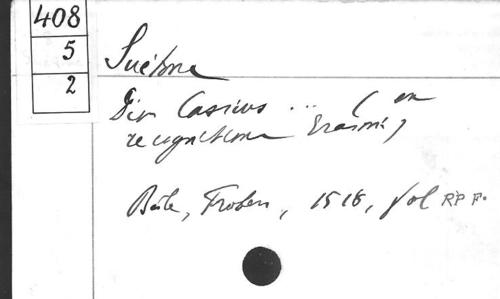 408
5
2
Suétone
Dion Cassius ... (ex
recognitione Erasmi)
Bâle, Froben, 1518, fol RP F.